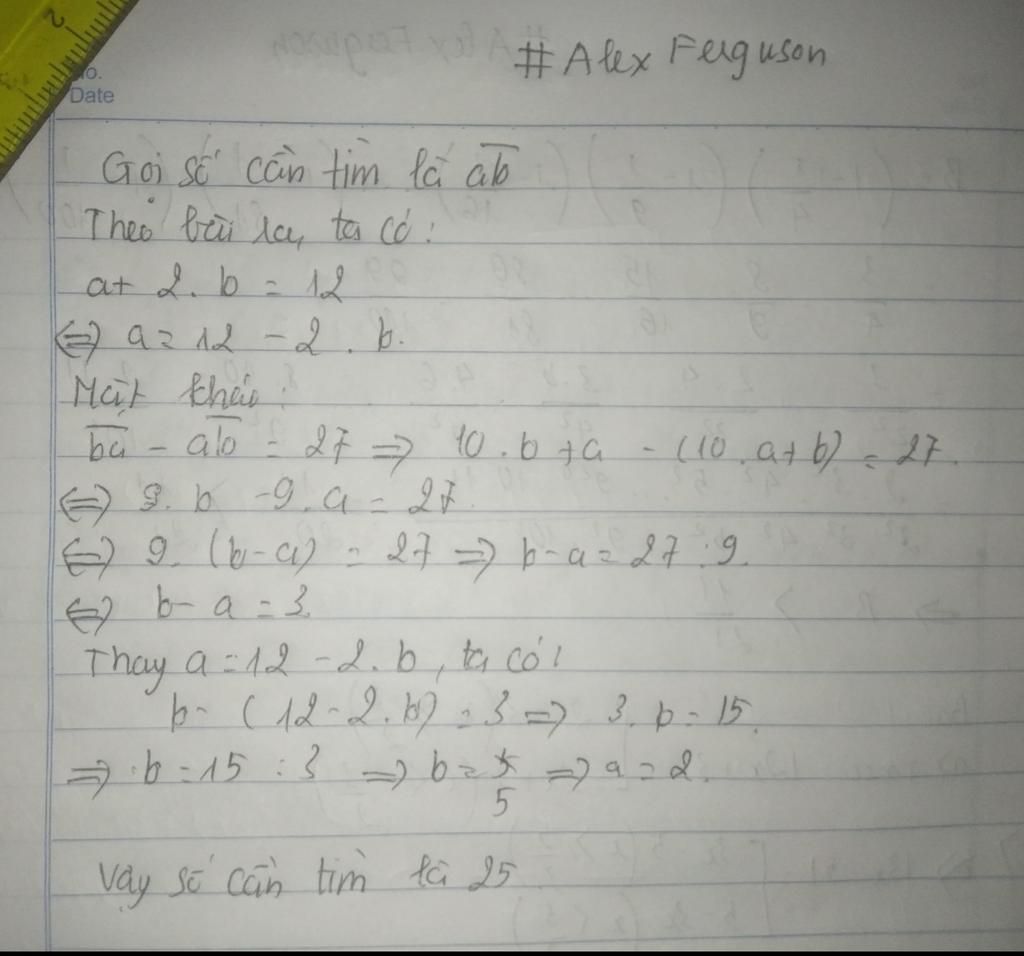 2
No.
Date
# Alex Ferguson
Gọi số cần tìm là a̅b̅
Theo bài ra, ta có:
a+ 2. b = 12
⇔ a = 12 - 2 . b.
Mặt khác:
b̅a̅ - a̅b̅ = 27 ⇒ 10 . b + a - (10 . a + b) = 27.
⇔ 9. b - 9. a = 27.
⇔ 9. (b-a) = 27 ⇒ b-a = 27 : 9.
⇔ b- a = 3.
Thay a = 12 - 2. b, ta có:
b- (12 - 2. b) = 3 ⇒ 3. b = 15.
⇒ b = 15 : 3 ⇒ b = 5 ⇒ a = 2.
Vậy số cần tìm là 25